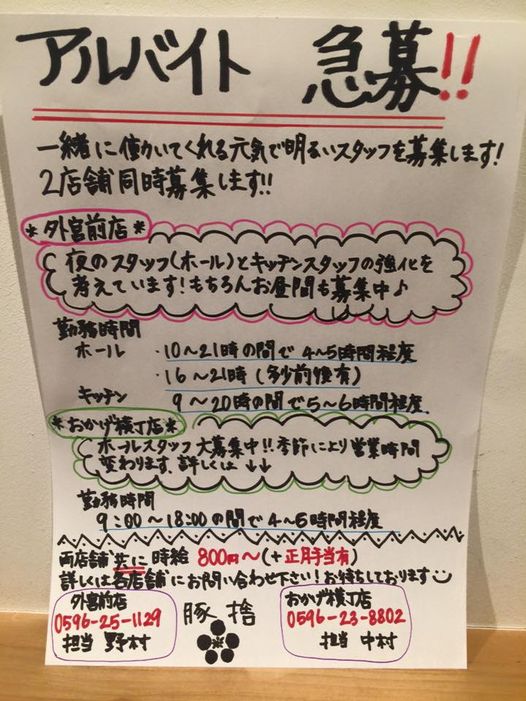 アルバイト 急募!!
一緒に働いてくれる元気で明るいスタッフを募集します!
2店舗同時募集します!!
*外宮前店*
夜のスタッフ(ホール)とキッチンスタッフの強化を
考えています!もちろんお昼間も募集中♪
勤務時間
ホール ・10~21時の間で4~5時間程度
・16~21時(多少前後有)
キッチン 9~20時の間で5~6時間程度
*おかげ横丁店*
ホールスタッフ大募集中!!季節により営業時間
変わります。詳しくは↓↓
勤務時間
9:00~18:00の間で4~6時間程度
両店舗共に時給 800円~(+正月手当有)
詳しくは各店舗にお問い合わせ下さい!お待ちしております
外宮前店
0596-25-1129
担当 野村
豚捨
おかげ横丁店
0596-23-8802
担当 中村